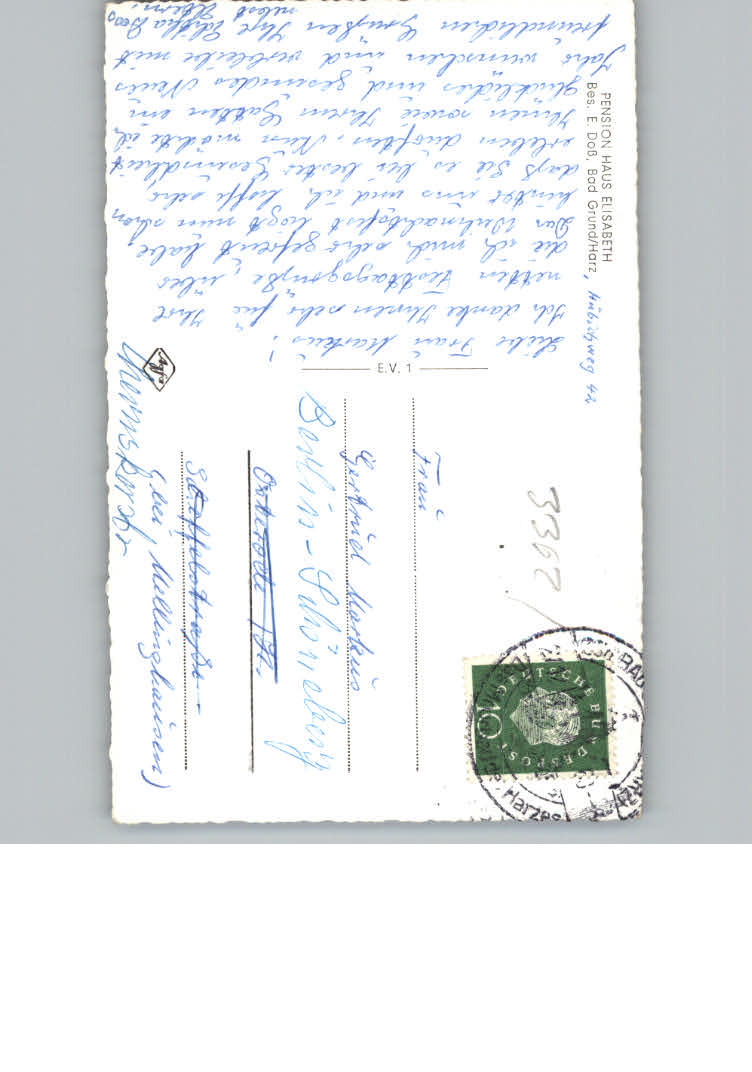 PENSION HAUS ELISABETH
Bes. E. Doß, Bad Grund/Harz, Hübichweg 42
Liebe Frau Markus!
Ich danke Ihnen sehr für Ihre
netten Festtagsgrüße, über
die ich mich sehr gefreut habe.
Das Weihnachtsfest liegt nun schon
hinter uns und ich hoffe sehr
daß Sie es bei bester Gesundheit
erleben durften. Nun möchte ich
Ihnen sowie Ihrem Gatten ein
glückliches und gesundes Neues
Jahr wünschen und verbleibe mit
freundlichen Grüßen Ihre
nebst Eltern.
E.V. 1
Agfa
3362
Frau
Gertrud Markus
Berlin-Schöneberg
Osterode/H.
Scheffelstraße
(bei Mellinghausen)
DEUTSCHE BUNDESPOST
10
BAD
Harzes